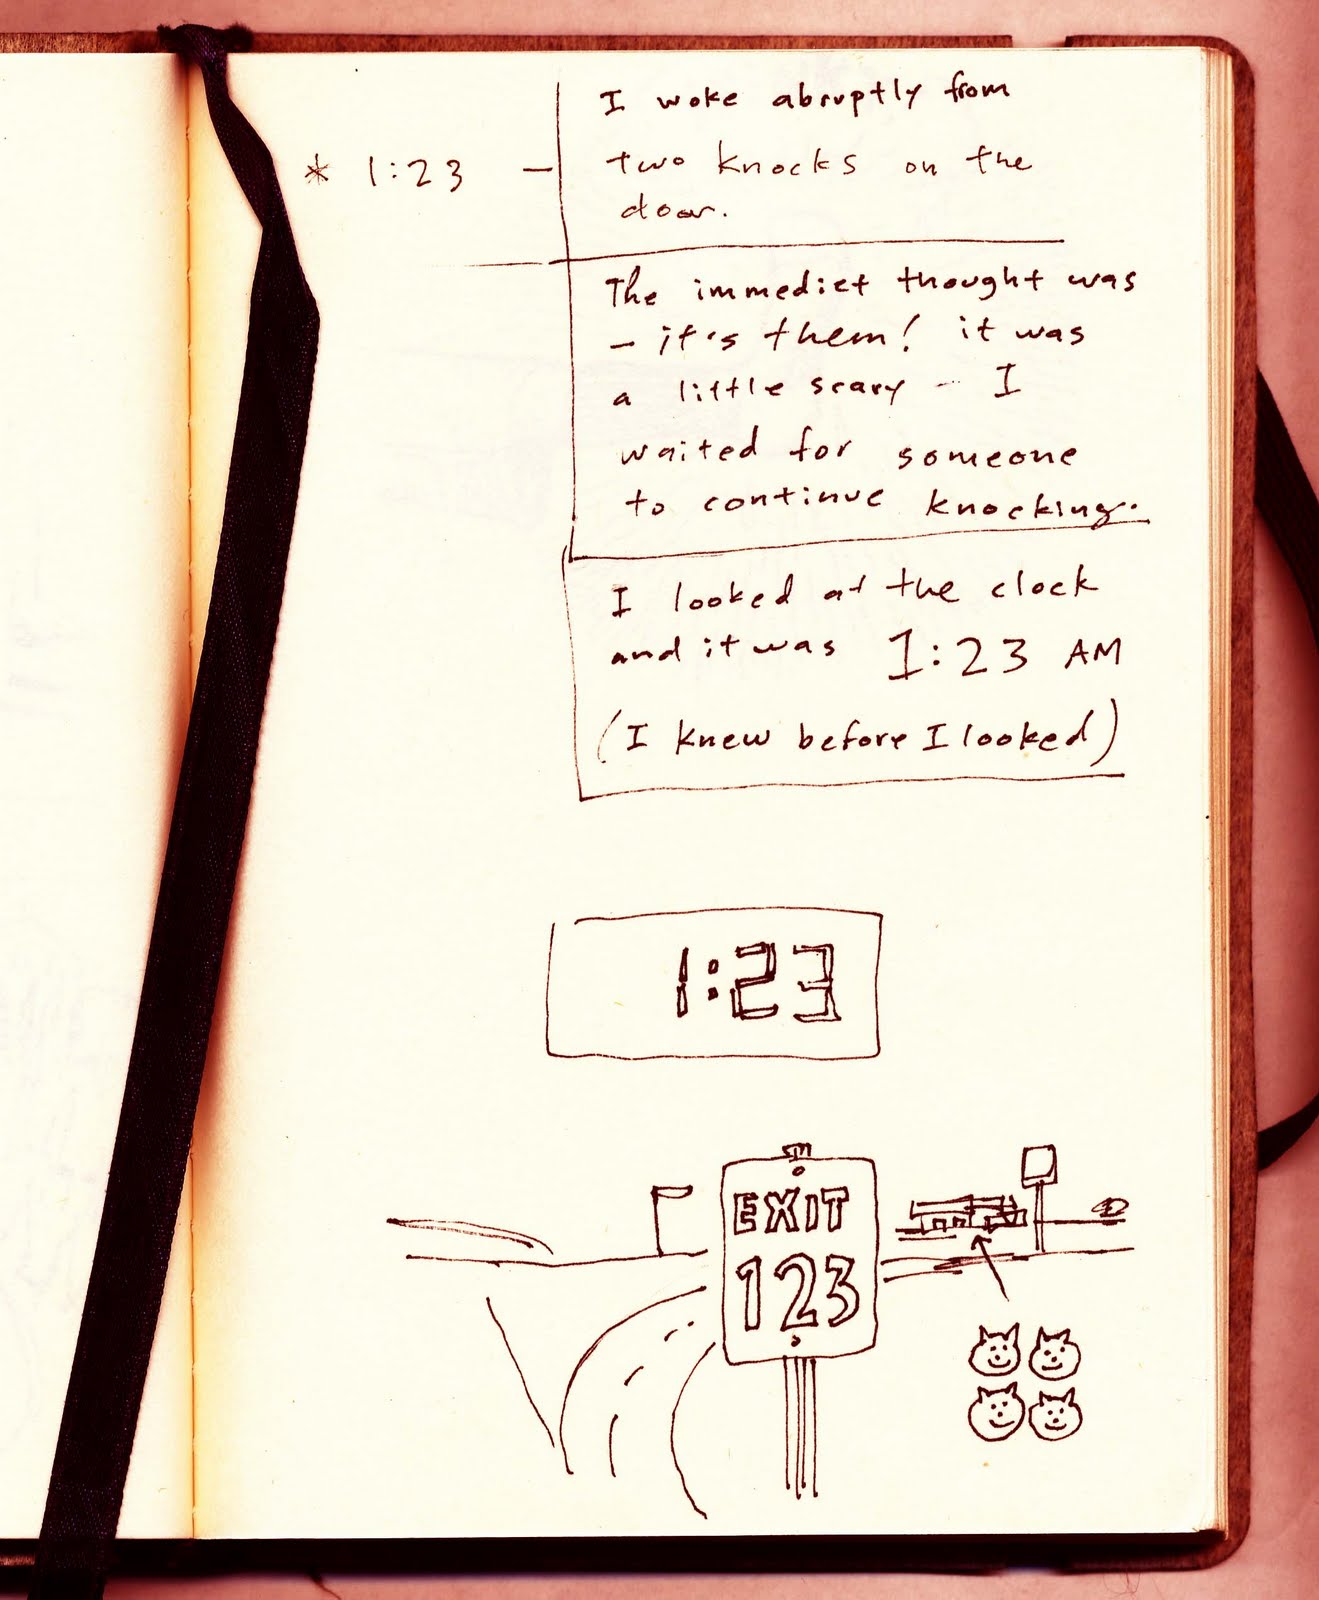 I woke abruptly from
* 1:23 — two knocks on the
door.
The immediet thought was
- it's them! it was
a little scary - I
waited for someone
to continue knocking.
I looked at the clock
and it was 1:23 AM
(I knew before I looked)
1:23
EXIT
123